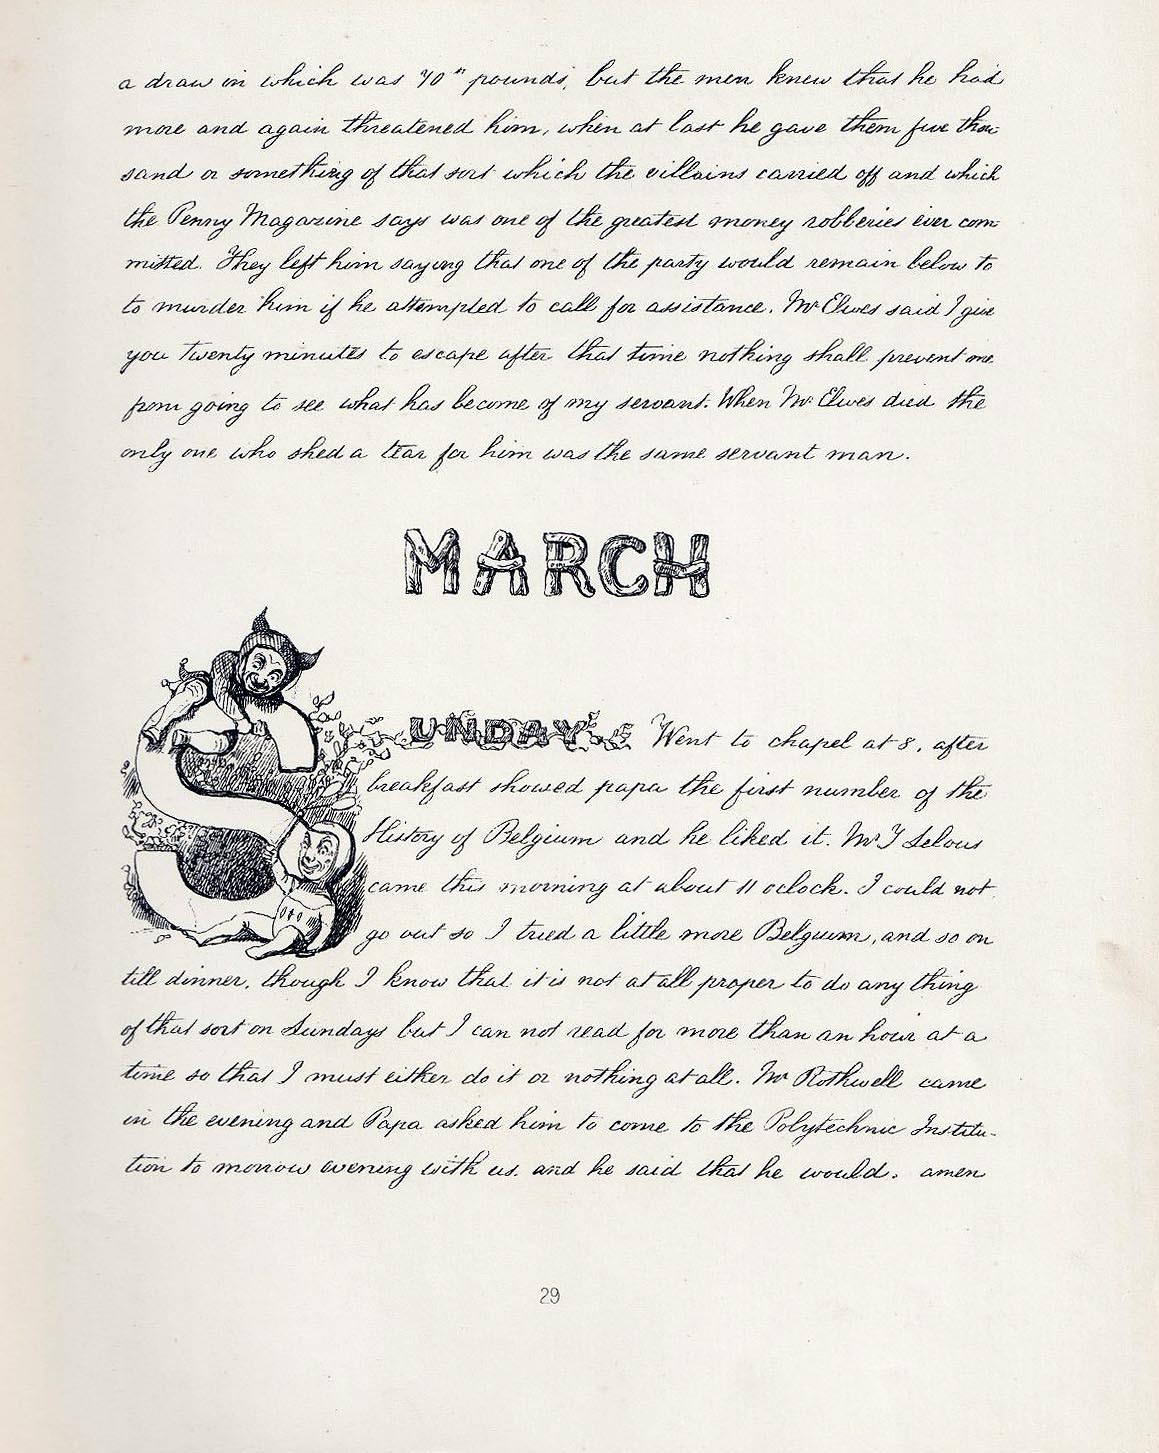 a draw in which was 70" pounds, but the men knew that he had
more and again threatened him, when at last he gave them five thou-
sand or something of that sort which the villains carried off and which
the Penny Magazine says was one of the greatest money robberies ever com-
mitted. They left him saying that one of the party would remain below to
to murder him if he attempted to call for assistance. Mr Elwes said I give
you twenty minutes to escape after that time nothing shall prevent me
from going to see what has become of my servant. When Mr Elwes died the
only one who shed a tear for him was the same servant man.
MARCH
SUNDAY. Went to chapel at 8, after
breakfast showed papa the first number of the
History of Belgium and he liked it. Mr Selous
came this morning at about 11 oclock. I could not
go out so I tried a little more Belgium, and so on
till dinner, though I know that it is not at all proper to do any thing
of that sort on Sundays but I can not read for more than an hour at a
time so that I must either do it or nothing at all. Mr Rothwell came
in the evening and Papa asked him to come to the Polytechnic Institu-
tion to morrow evening with us. and he said that he would. amen
29